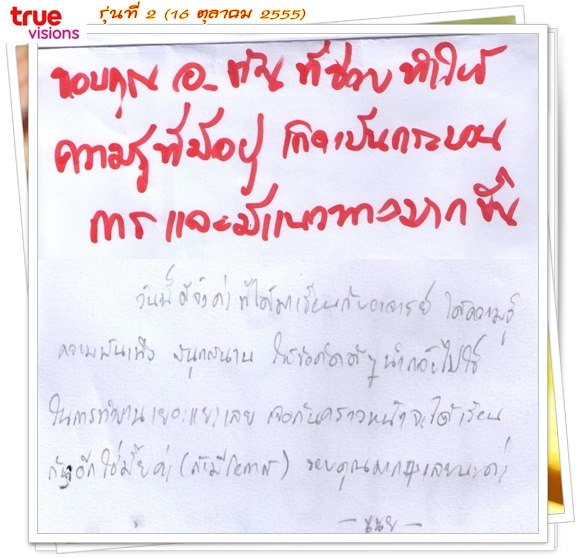 true
visions
รุ่นที่ 2 (16 ตุลาคม 2555)
ขอบคุณ อ. ที่ช่วย ทำให้
ความรู้ที่มีอยู่ เกิดเป็นกระบวน
การ และมีแนวทางมากขึ้น
วันนี้ดีจังค่ะ ที่ได้มาเรียนกับอาจารย์ ได้ความรู้
ความบันเทิง สนุกสนาน ให้ข้อคิดดีๆ นำกลับไปใช้
ในการทำงานเยอะแยะเลย เจอกันคราวหน้าจะได้เรียน
กันอีกใช่มั้ยค่ะ (ถ้ามีโอกาส) ขอบคุณมากนะค่ะ